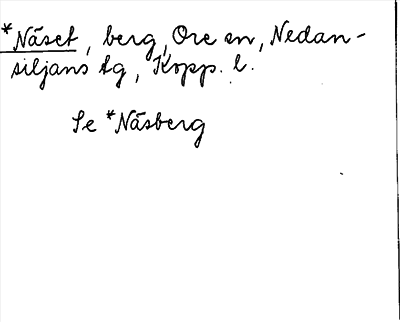 *Näset, berg, Ore sn, Nedan-
siljans tg, Kopp. l.
Se *Näsberg